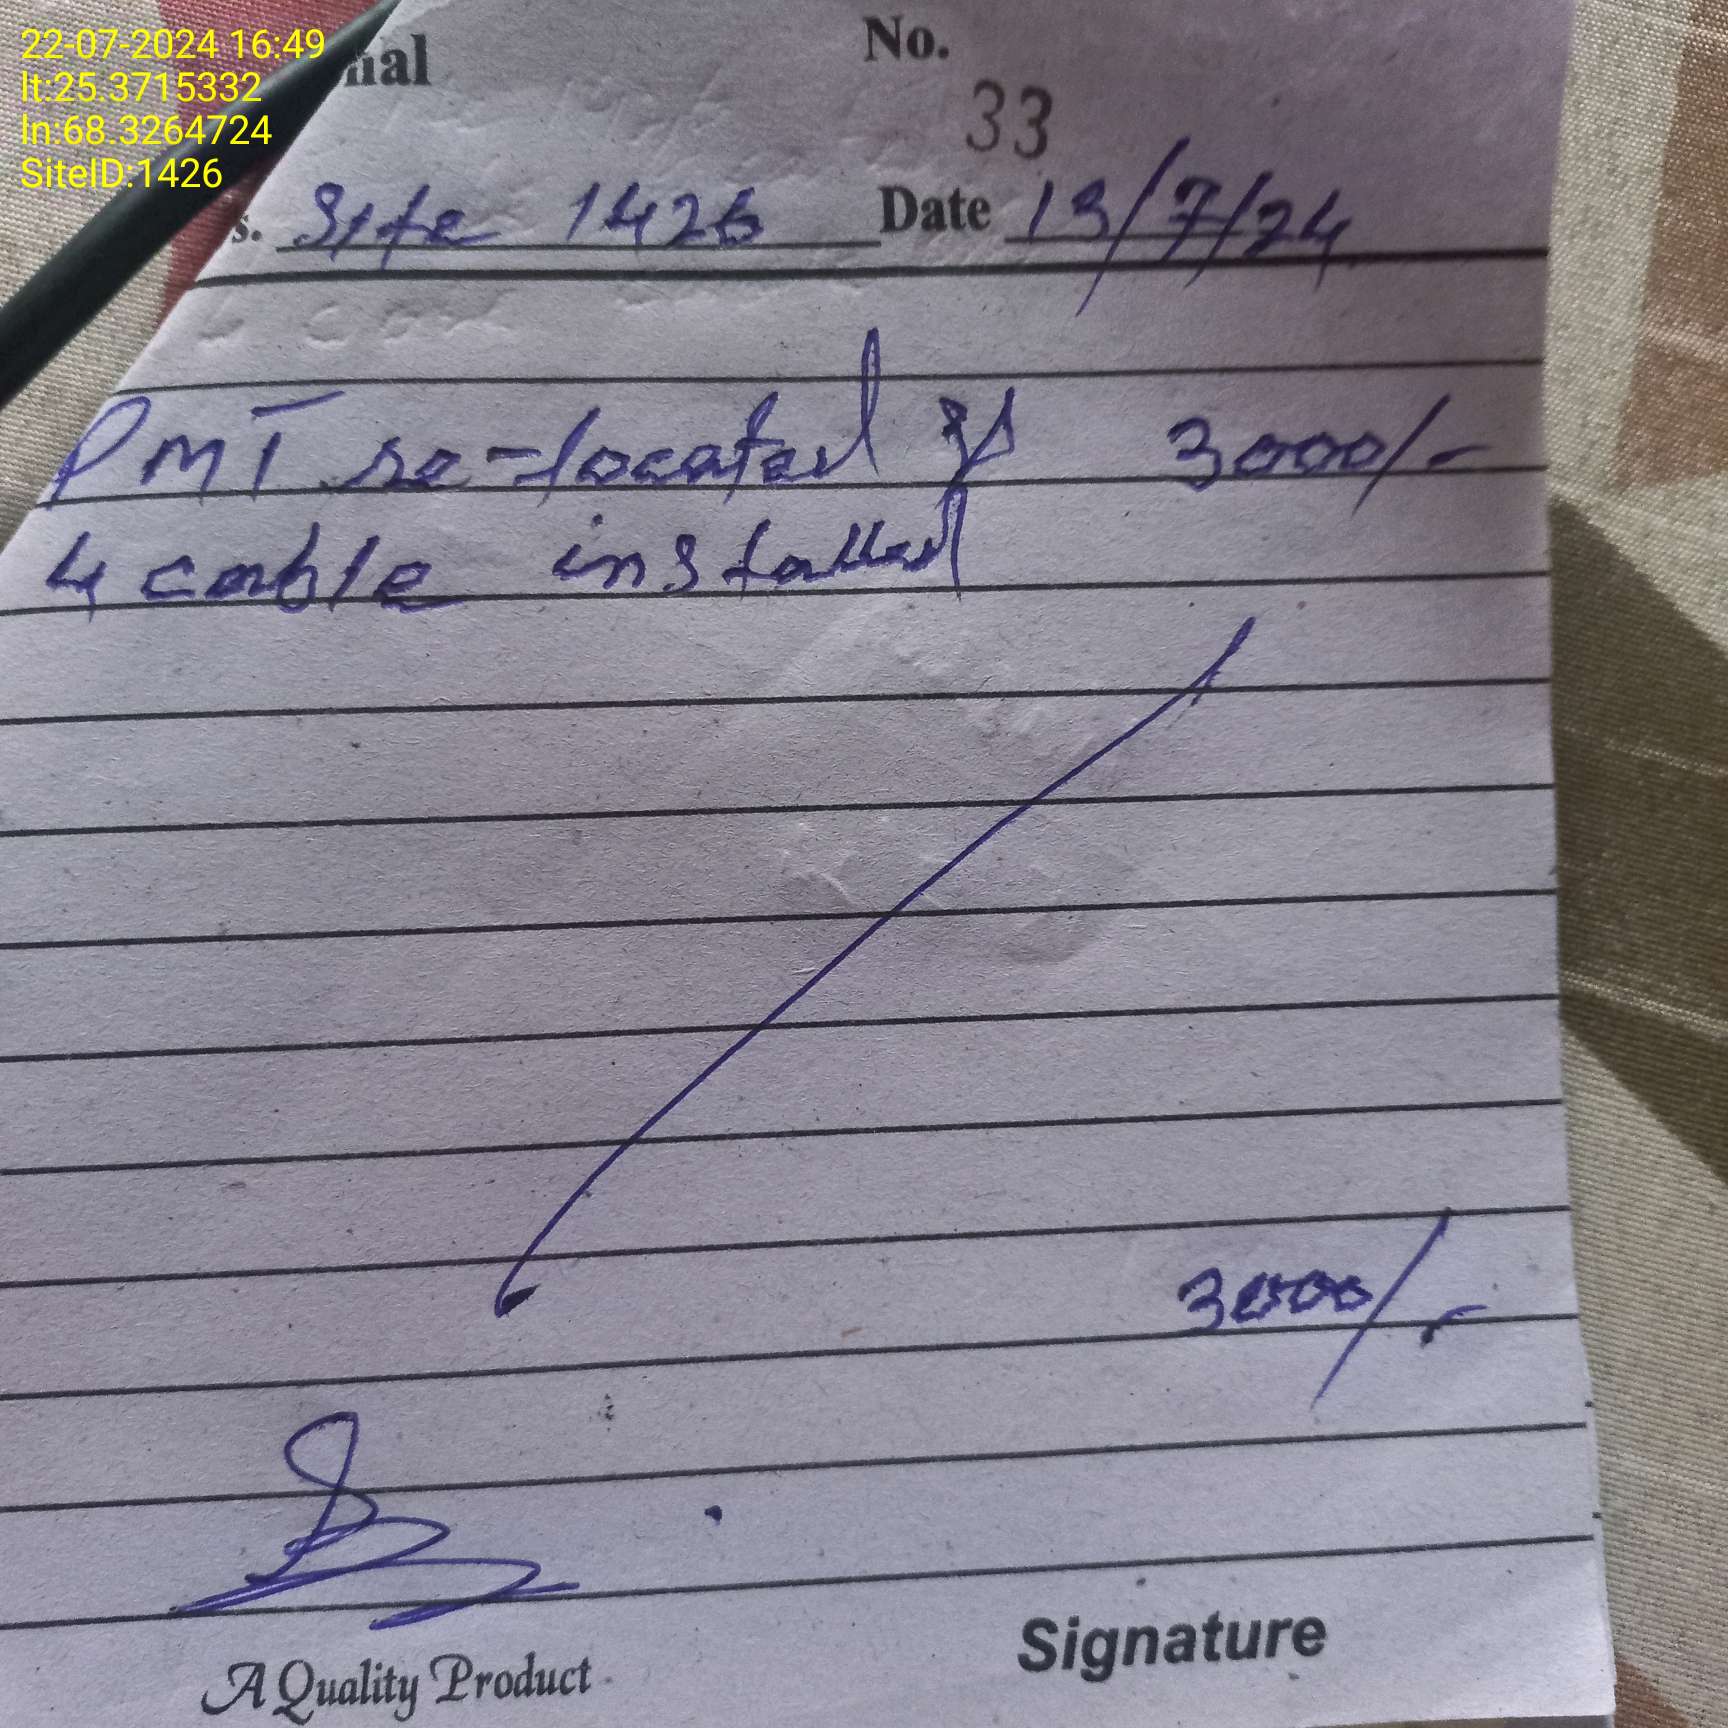 22-07-2024 16:49
lt:25.3715332
ln:68.3264724
SiteID:1426
nal
No.
33
s. Site 1426 Date 13/7/24
PMT re-located & 3000/-
4 cable installed
3000/-
A Quality Product
Signature